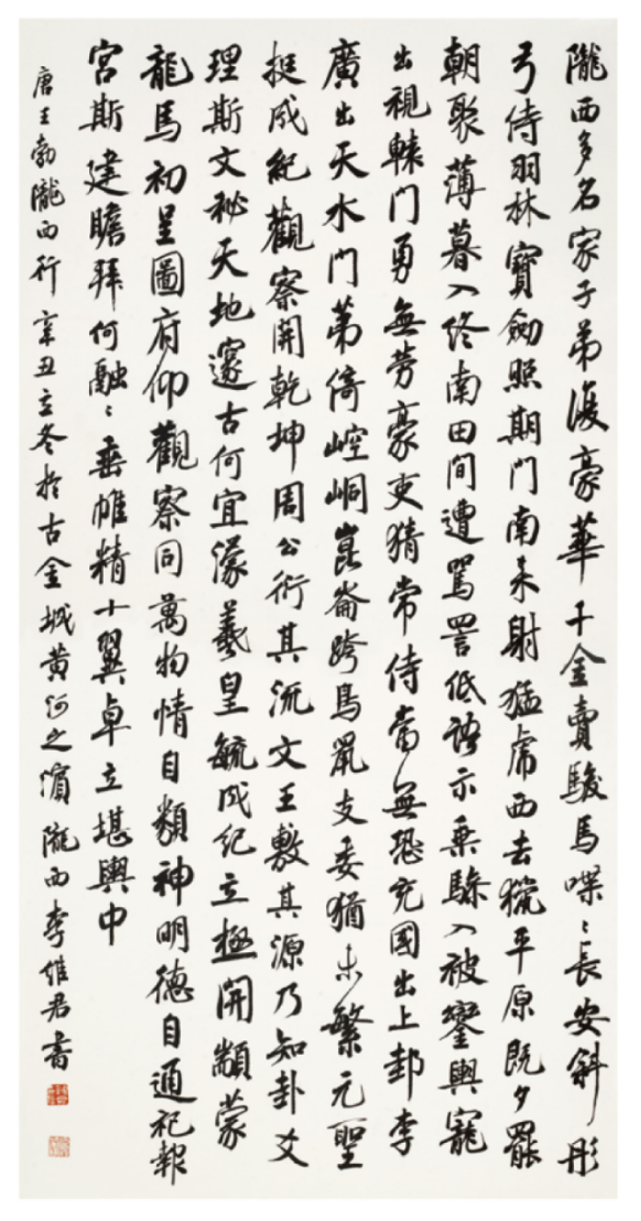 隴西多名家子弟復豪華千金賣駿馬喋〻長安斜彤
弓侍羽林寶劍照期門南來射猛虎西去獵平原既夕罷
朝聚薄暮入終南田間遭罵詈低語示乘驂入被鑾輿寵
出視轅門勇無勞豪吏猜常侍當無恐充國出上邽李
廣出天水門第倚崆峒崑崙跨鳥鼠支委猶未繁元聖
挺成紀觀察開乾坤周公衍其流文王敷其源乃知卦爻
理斯文祕天地邃古何宜濛羲皇毓成紀立極開顓蒙
龍馬初呈圖府仰觀察同萬物情自類神明德自通祀報
宮斯建瞻拜何融〻垂帷精十翼卓立堪輿中
唐王勃隴西行 辛丑立冬於古金城黄河之濱隴西李維君書